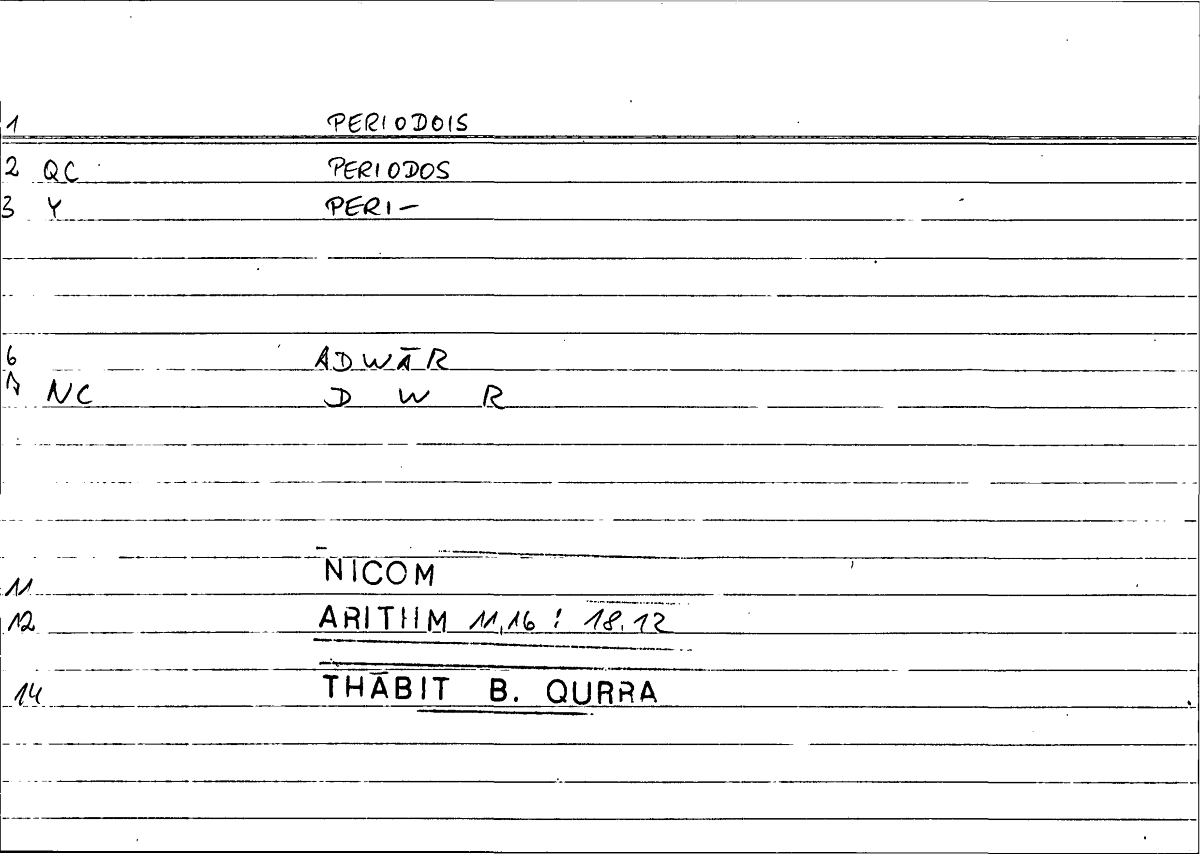 1 PERIODOIS
2 QC PERIODOS
3 Y PERI-
6 ADWĀR
7 NC D W R
11 NICOM
12 ARITHM 11,16 : 18.12
14 THĀBIT B. QURRA